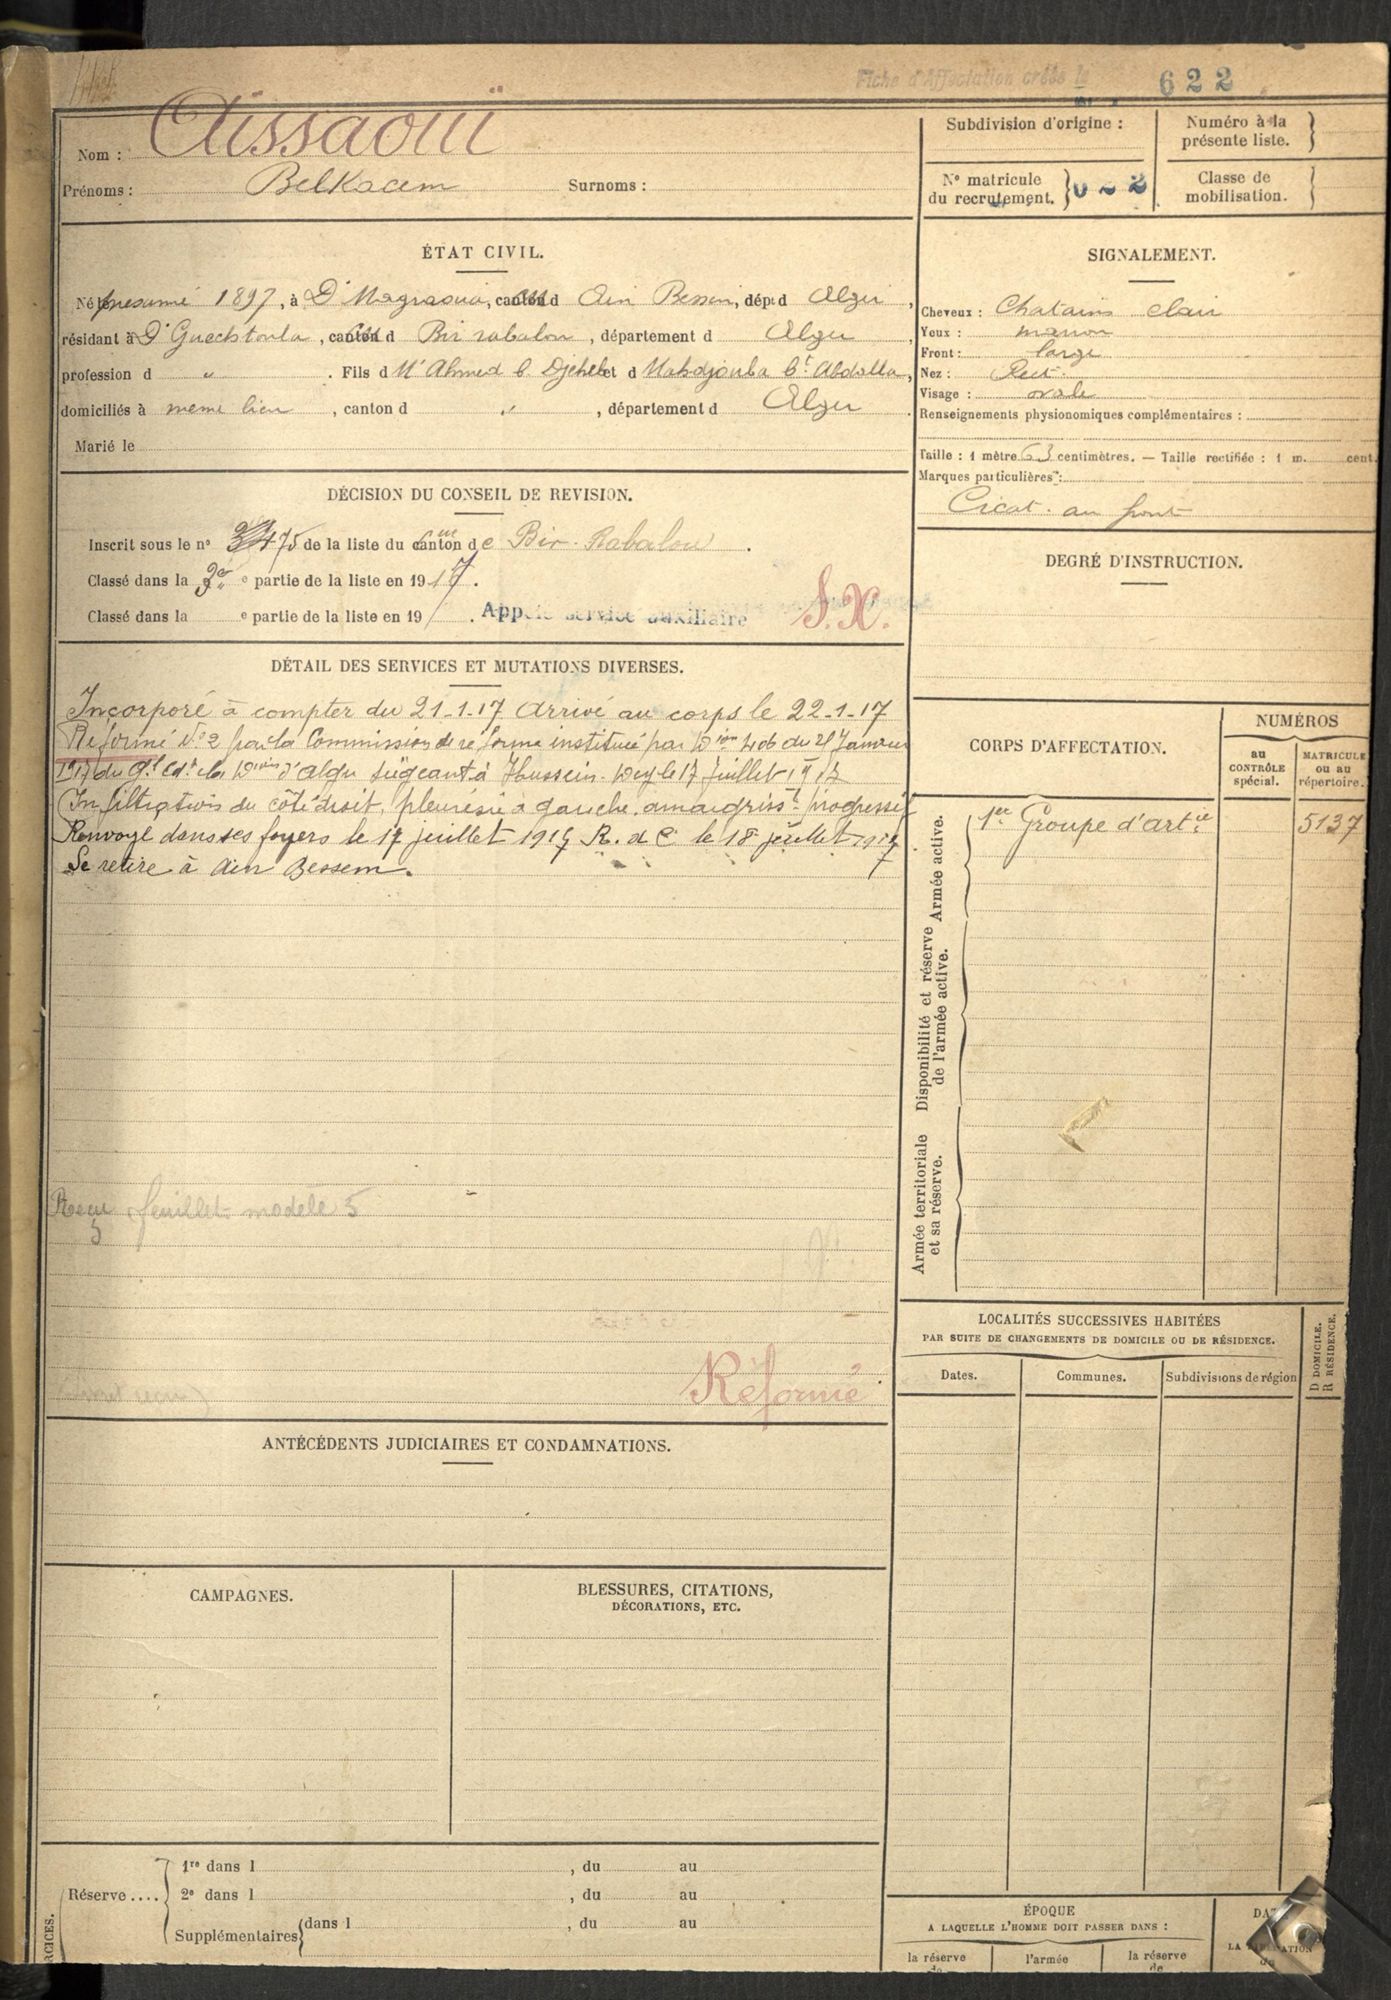 Fiche d'Affectation créée le
622
Nom : Aïssaoui
Prénoms : Belkacem Surnoms :
Subdivision d'origine :
Numéro à la présente liste.
N° matricule du recrutement. 622
Classe de mobilisation.
ÉTAT CIVIL.
Né présumé 1897, à D' Magraoua, canton d Ain Bessem, dépt d Alger,
résidant à D' Guechtoula, canton d Bir rabalou, département d Alger
profession d " . Fils d M' Ahmed b. Djehel et d Mahdjouba bt Abdalla,
domiciliés à même lieu , canton d " , département d Alger
Marié le
SIGNALEMENT.
Cheveux : Chatains clair
Yeux : marron
Front : large
Nez : Rect.
Visage : ovale
Renseignements physionomiques complémentaires :
Taille : 1 mètre 63 centimètres. — Taille rectifiée : 1 m. cent.
Marques particulières :
Cicat. au front
DÉCISION DU CONSEIL DE REVISION.
Inscrit sous le n° 475 de la liste du canton de Bir-Rabalou.
Classé dans la 3e e partie de la liste en 1917.
Classé dans la e partie de la liste en 19 . Appelé service auxiliaire S.X.
DEGRÉ D'INSTRUCTION.
DÉTAIL DES SERVICES ET MUTATIONS DIVERSES.
Incorporé à compter du 21-1-17 Arrivé au corps le 22-1-17
Réformé N°2 par la Commission de réforme institué par Dion 406 du 21 Janvier
1917 du Gal Cdt la Divion d'Alger siégeant à Hussein-Dey le 17 Juillet 1917
Infiltration du côté droit, pleurésie à gauche, amaigrisst progressif
Renvoyé dans ses foyers le 17 juillet 1917 R. d C. le 18 juillet 1917
Se retire à Ain Bessem.
Reçu feuillet modèle 5
Réformé
CORPS D'AFFECTATION.
NUMÉROS
au CONTRÔLE spécial.
MATRICULE ou au répertoire.
Armée active.
1er Groupe d'artie 5137
Disponibilité et réserve de l'armée active.
Armée territoriale et sa réserve.
LOCALITÉS SUCCESSIVES HABITÉES
PAR SUITE DE CHANGEMENTS DE DOMICILE OU DE RÉSIDENCE.
Dates. Communes. Subdivisions de région
D DOMICILE.
R RÉSIDENCE.
ANTÉCÉDENTS JUDICIAIRES ET CONDAMNATIONS.
CAMPAGNES.
BLESSURES, CITATIONS,
DÉCORATIONS, ETC.
Réserve....
1re dans l , du au
2e dans l , du au
Supplémentaires dans l , du au
RCICES.
ÉPOQUE
A LAQUELLE L'HOMME DOIT PASSER DANS :
la réserve de
l'armée
la réserve de
DA
LA ATION